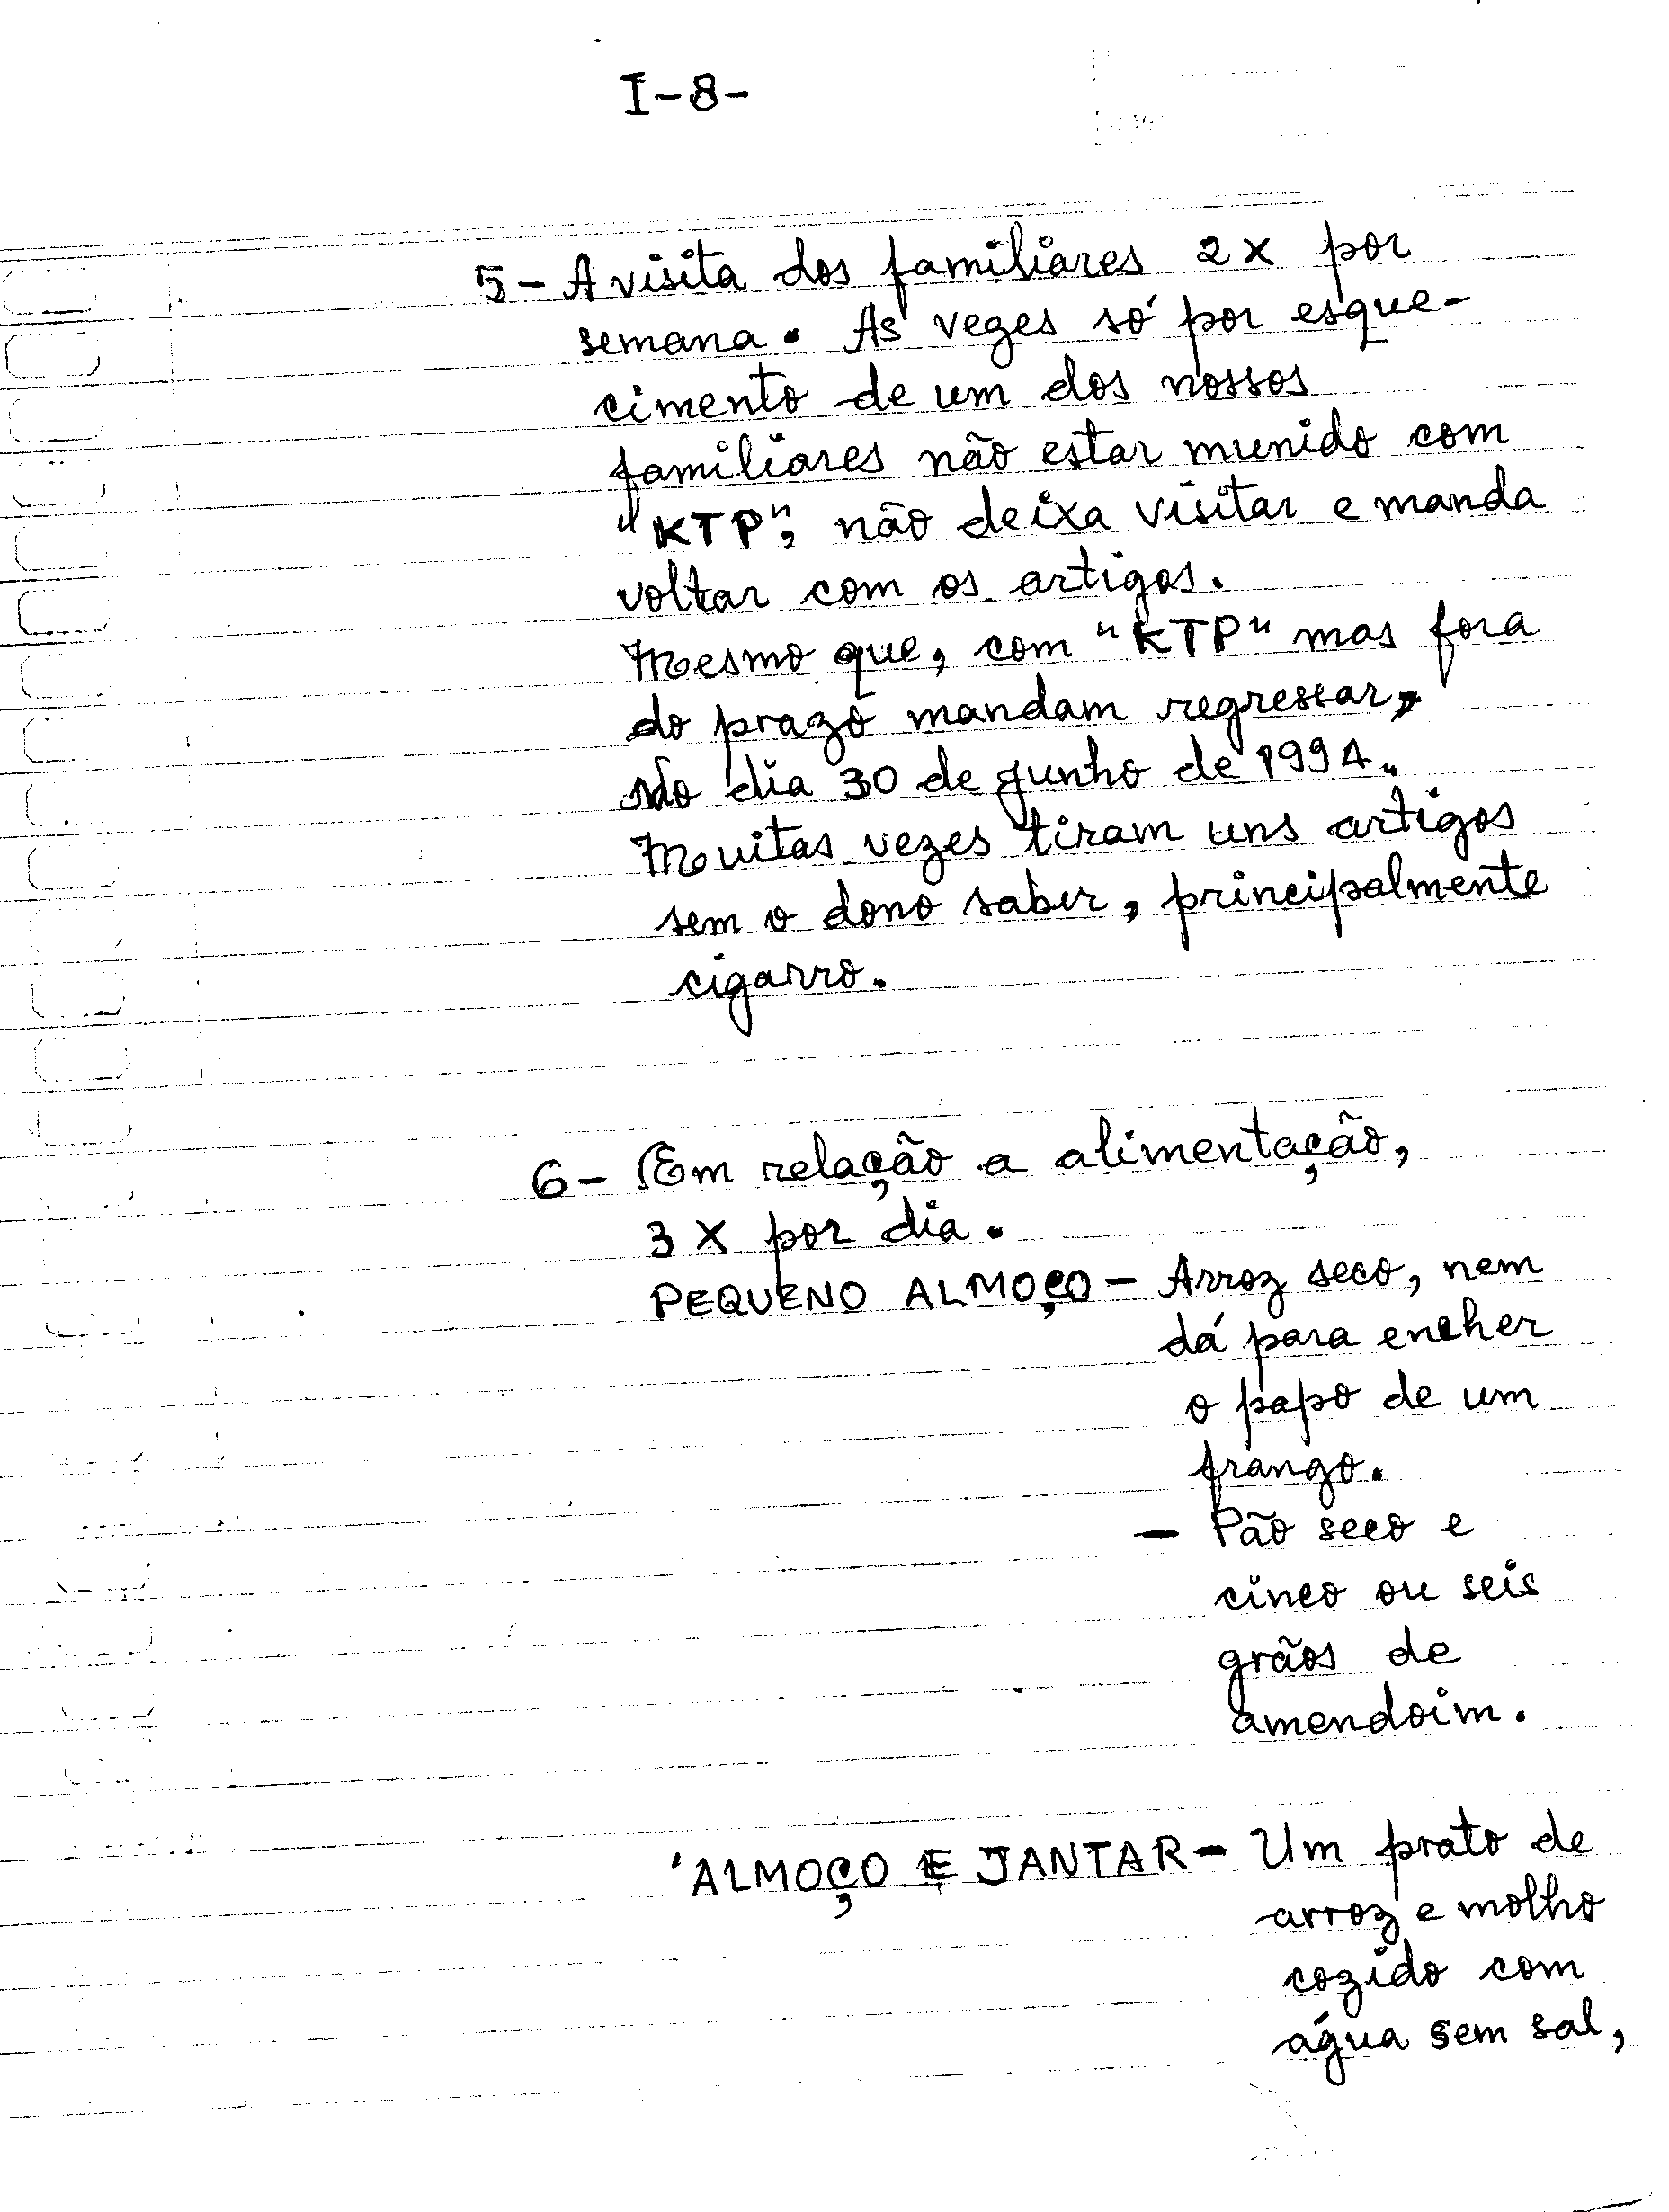 I-8-
5- A visita dos familiares 2x por
semana. As vezes só por esque-
cimento de um dos nossos
familiares não estar munido com
"KTP", não deixa visitar e manda
voltar com os artigos.
Mesmo que, com "KTP" mas fora
do prazo mandam regressar,
No dia 30 de Junho de 1994.
Muitas vezes tiram uns artigos
sem o dono saber, principalmente
cigarro.
6- Em relação a alimentação,
3 X por dia.
PEQUENO ALMOÇO - Arroz seco, nem
dá para encher
o papo de um
frango.
- Pão seco e
cinco ou seis
grãos de
amendoim.
ALMOÇO E JANTAR - Um prato de
arroz e molho
cozido com
água sem sal,